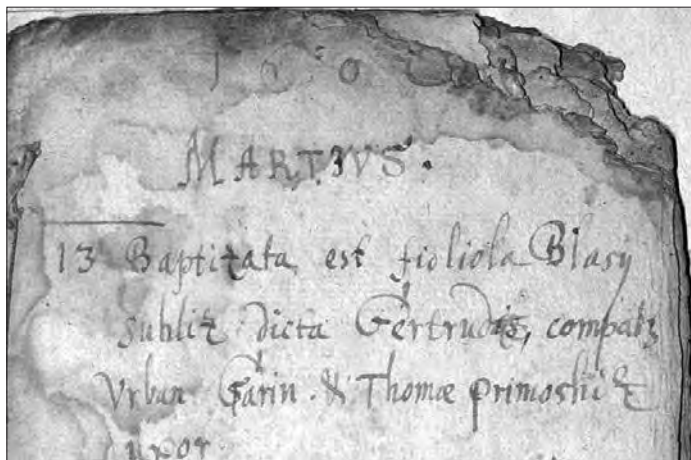 MARTIVS.
13 Baptizata est fioliola Blasy
Subliz dicta Gertrudis, compatz
Vrban Garin. & Thomæ primoshiz
uxor